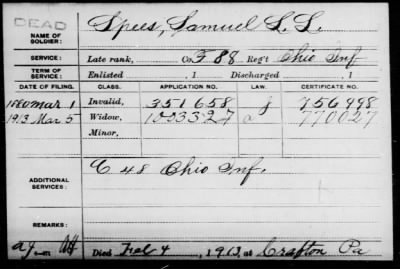 DEAD
NAME OF SOLDIER: Spees, Samuel L. L.
SERVICE: Late rank, Co. F 88 Reg't Ohio Inf
TERM OF SERVICE: Enlisted , 1 Discharged , 1
DATE OF FILING. CLASS. APPLICATION NO. LAW. CERTIFICATE NO.
1880 Mar 1 Invalid, 351658 756998
1913 Mar 5 Widow, 1003327 a 770027
Minor,
ADDITIONAL SERVICES: C 48 Ohio Inf.
REMARKS:
Died Feb 4, 1913, at Crafton Pa